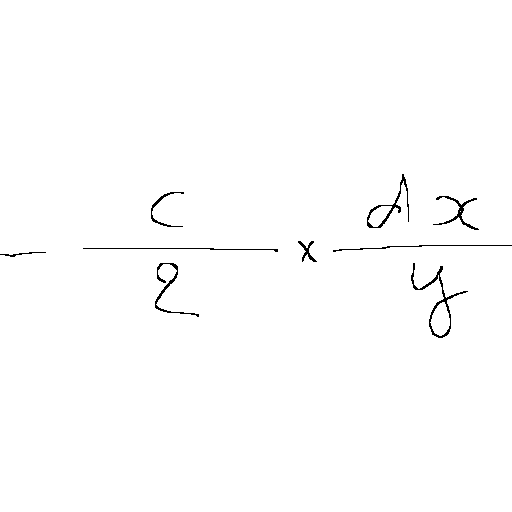 - \frac{c}{2} \times \frac{dx}{y}